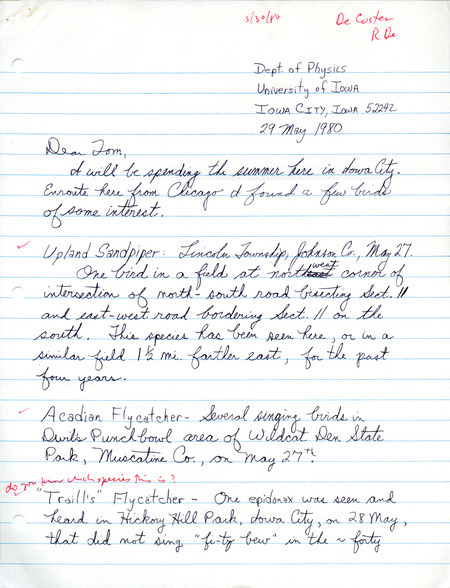 5/30/80
De Coster
R De
Dept. of Physics
University of Iowa
Iowa City, Iowa 52242
29 May 1980
Dear Tom,
I will be spending the summer here in Iowa City.
Enroute here from Chicago I found a few birds
of some interest.
✓ Upland Sandpiper: Lincoln Township, Johnson Co., May 27.
One bird in a field at northwest corner of
intersection of north-south road bisecting Sect. 11
and east-west road bordering Sect. 11 on the
south. This species has been seen here, or in a
similar field 1 1/2 mi. farther east, for the past
four years.
✓ Acadian Flycatcher - Several singing birds in
Devil's Punchbowl area of Wildcat Den State
Park, Muscatine Co., on May 27th.
do you know which species this is?
"Traill's" Flycatcher - One epidonax was seen and
heard in Hickory Hill Park, Iowa City, on 28 May,
that did not sing "fi-tz bew" in the ~ forty